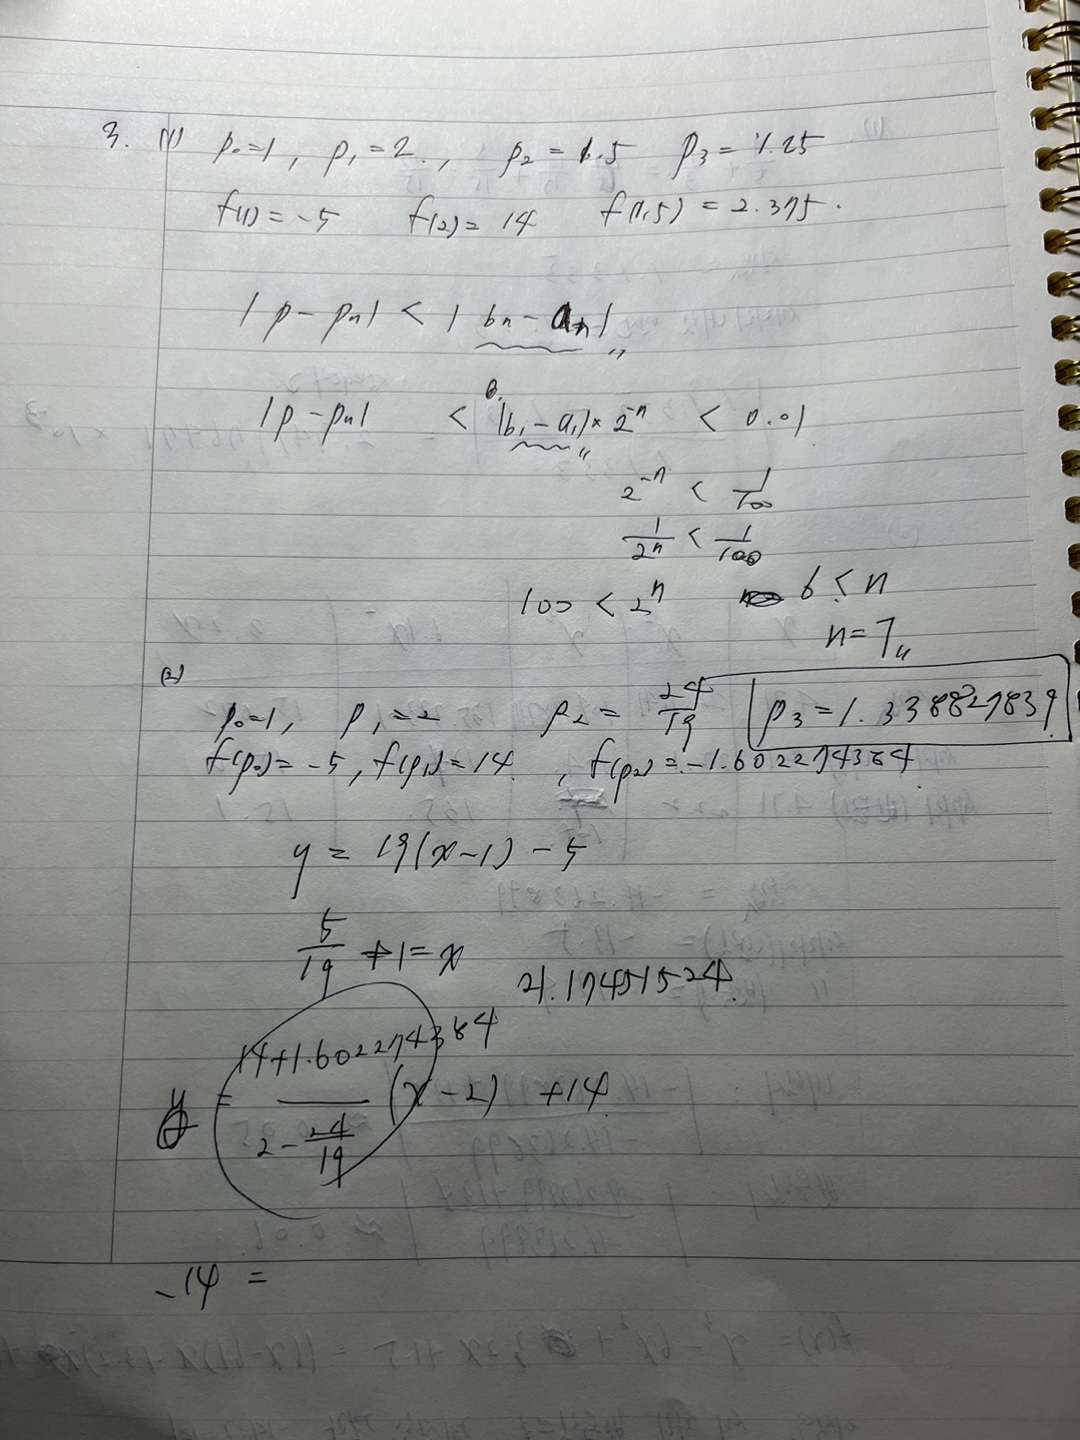 3. (1) p₀=1, p₁=2, p₂=1.5 p₃=1.25
f(1)=-5 f(2)=14 f(1.5)=2.375.
|p-pn| < |bn-an|〃
|p-pn| < |b₁-a₁|×2⁻ⁿ < 0.01
2⁻ⁿ < 1/100
1/2ⁿ < 1/100
100 < 2ⁿ 6 < n
n=7〃
(2)
p₀=1, p₁=2 p₂=24/19 p₃=1.338827839
f(p₀)=-5, f(p₁)=14, f(p₂)=-1.602274384
y = 19(x-1)-5
5/19+1=x
21.17451524
y = (14+1.602274384)/(2-24/19) (x-2) +14
-14 =